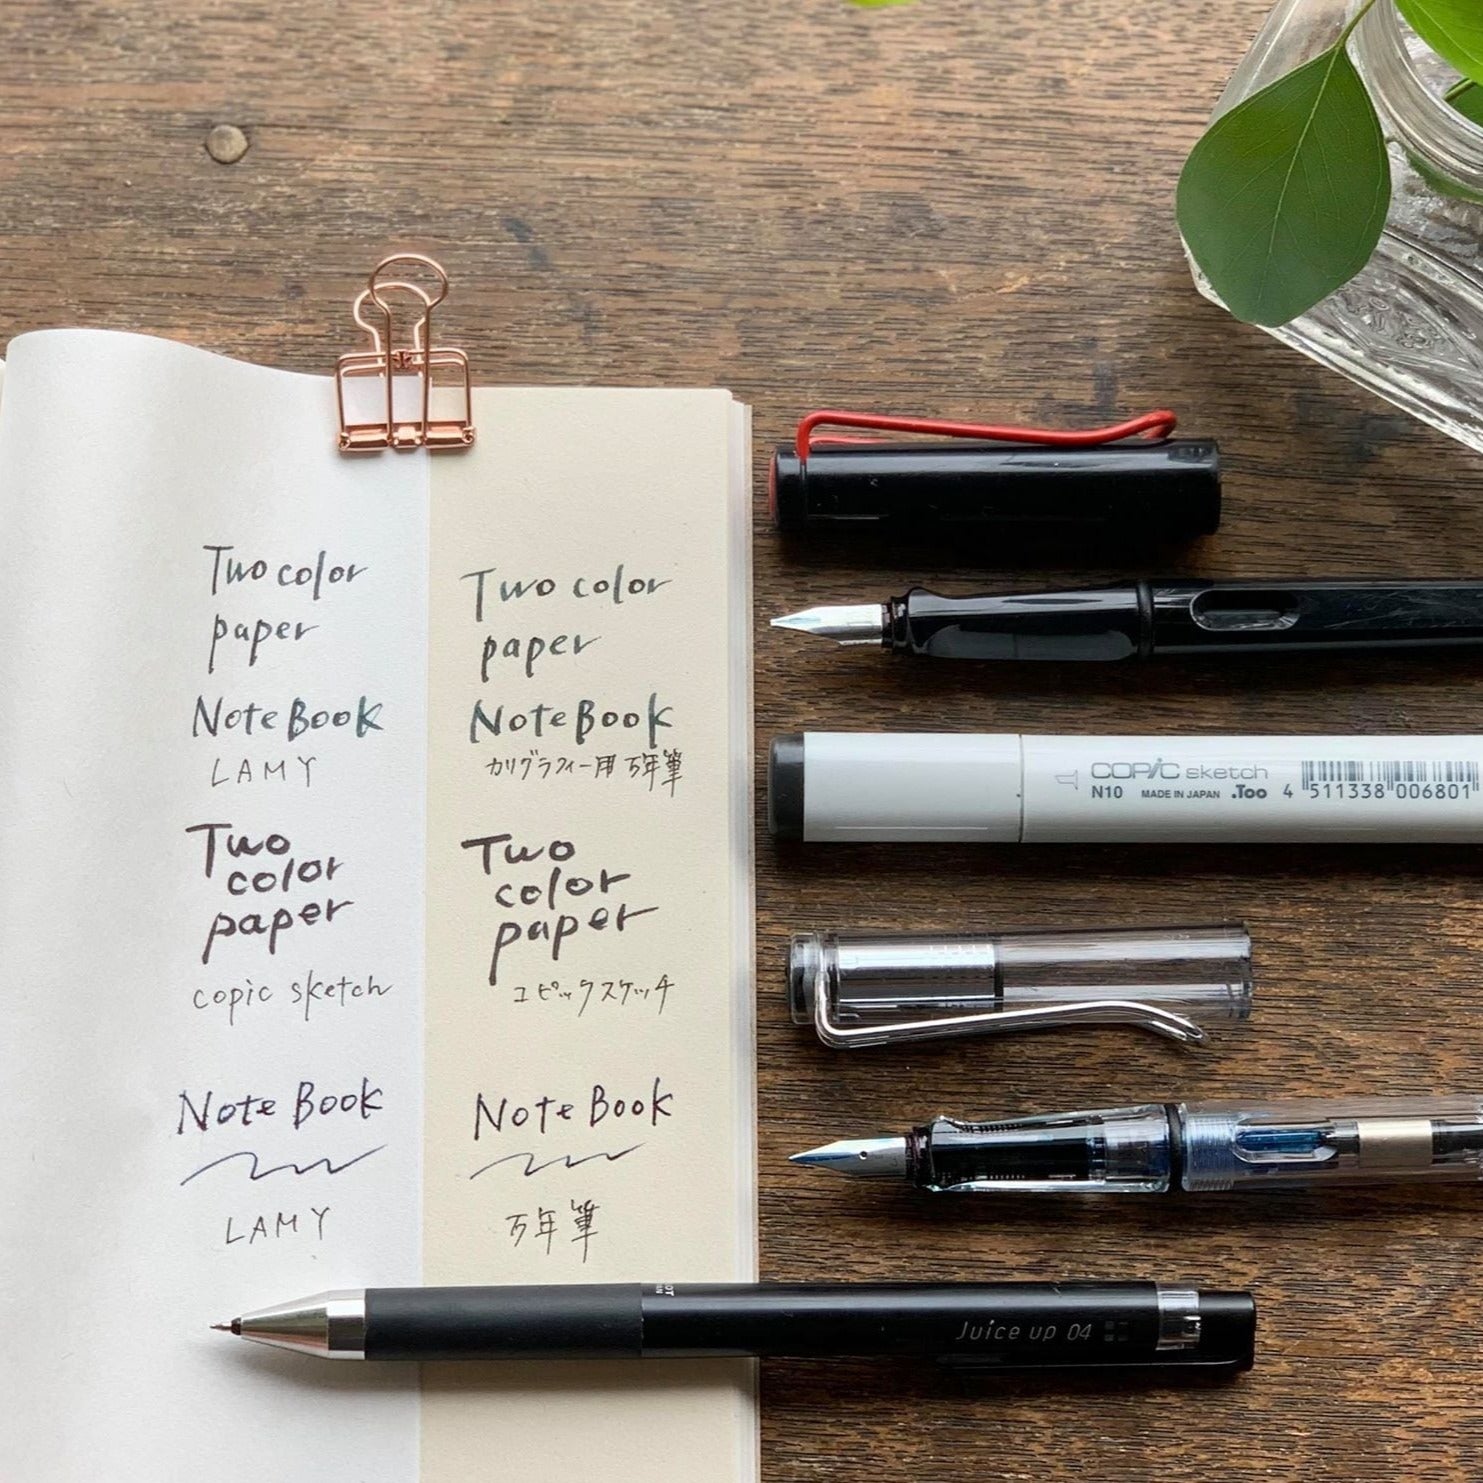 Two color
paper
NoteBook
LAMY
Two
color
paper
copic sketch
Note Book
LAMY
Two color
paper
NoteBook
カリグラフィー用 万年筆
Two
color
paper
コピックスケッチ
Note Book
万年筆
COPIC sketch
N10 MADE IN JAPAN .Too 4 511338 006801
Juice up 04